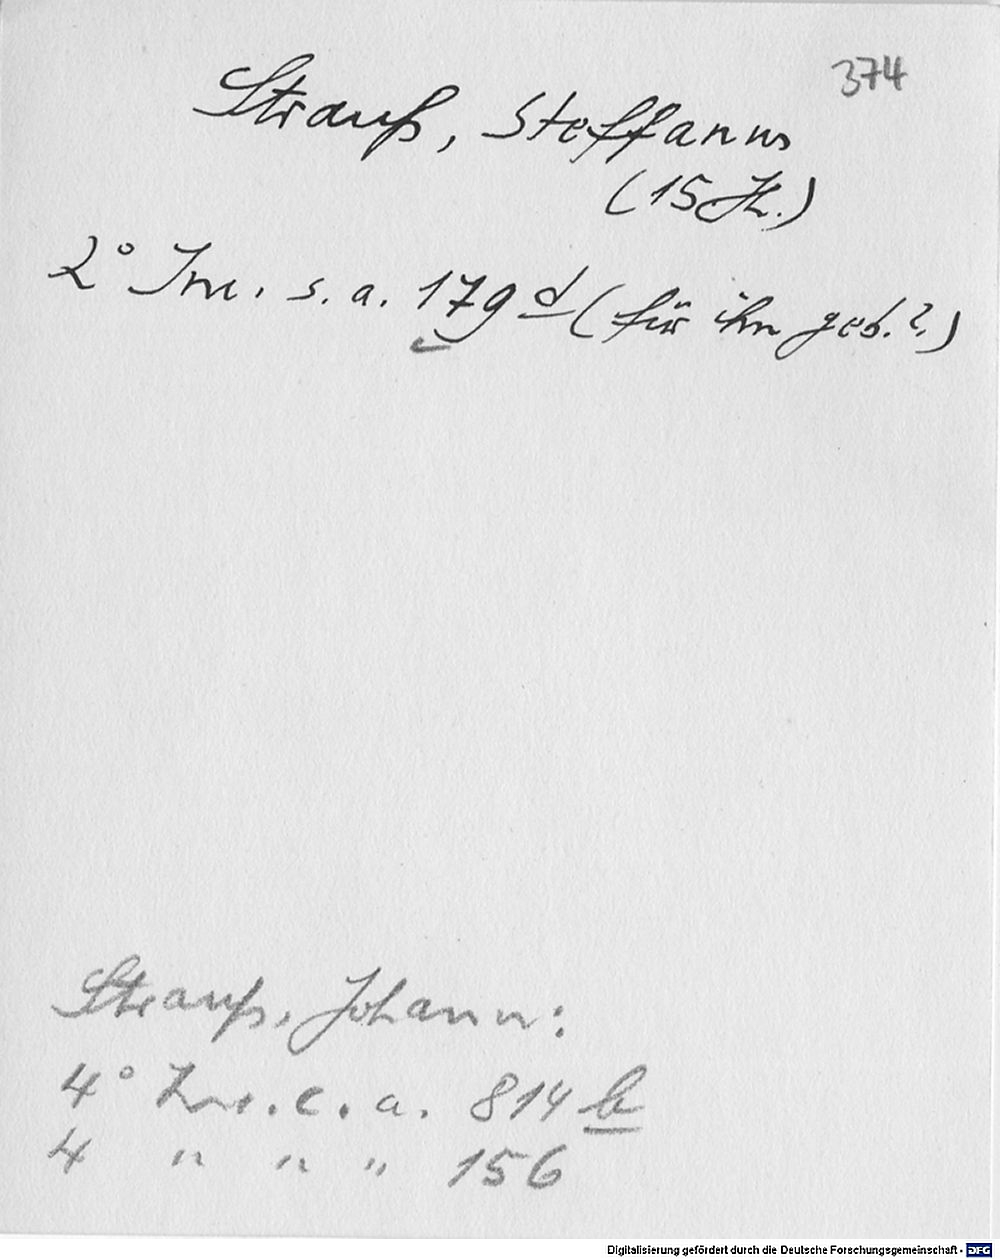 374
Strauß, Steffanus
(15 Jh.)
2° Inc. s. a. 179 d (für ihn geb.?)
Strauß, Johann:
4° Inc. c. a. 814 b
4 " " " 156
Digitalisierung gefördert durch die Deutsche Forschungsgemeinschaft - DFG